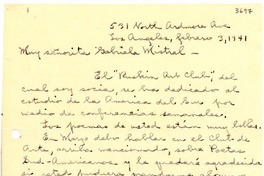 1
3697
531 North Ardmore Ave
Los Angeles, febrero 3, 1941
Muy señorita Gabriela Mistral -
El "Ruskin Art Club" del
cual soy socia, se ha dedicado al
estudio de la America del Sur por
medio de conferencias semanales.
Los poemas de usted son muy bellos.
En Mayo debo hablar en el Club de
Arte, arriba mencionado, sobre Poetas
Sud-Americanos y le quedaré agradecida
si usted pudiera mandarme algunos